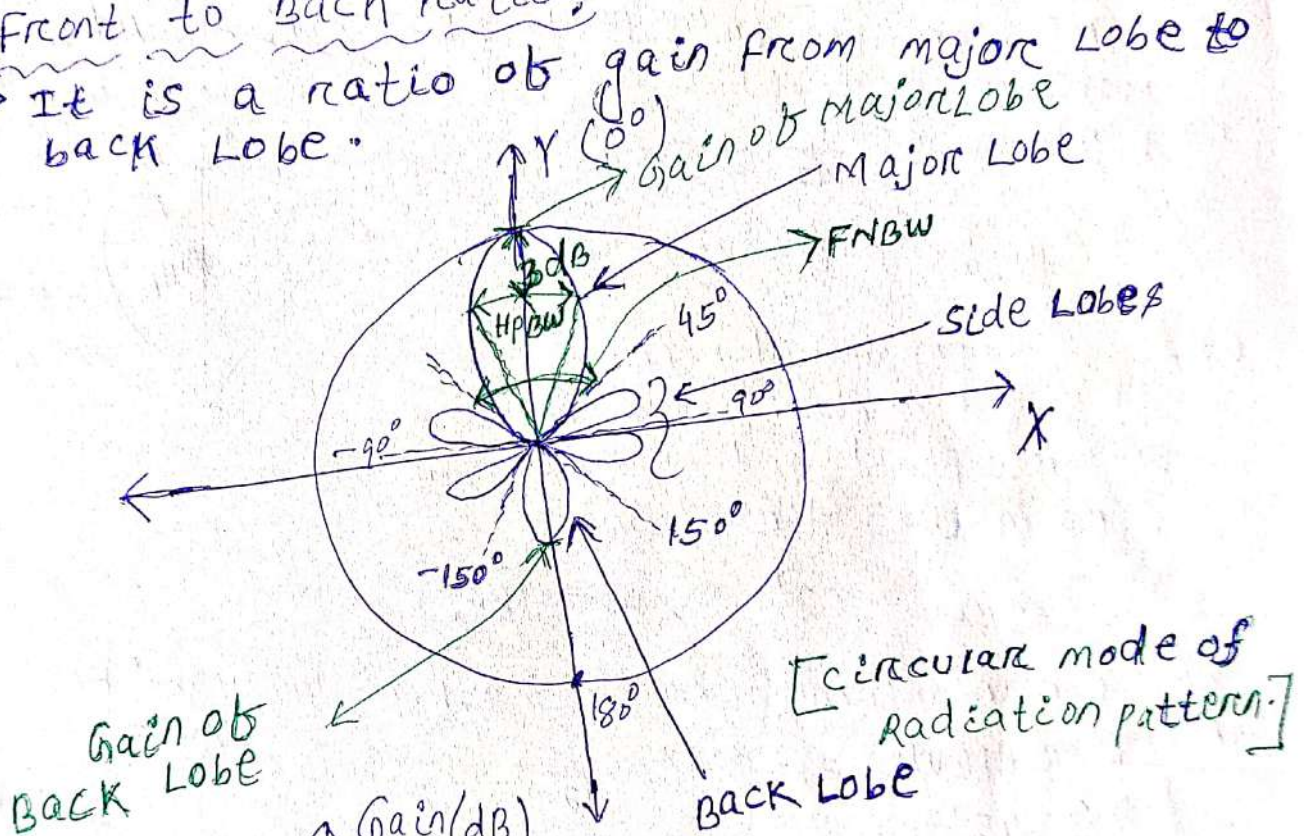 Front to Back ratio:
It is a ratio of gain from major Lobe to
back Lobe.
Y (0°)
Gain of Major Lobe
Major Lobe
FNBW
3dB
HPBW
45°
Side Lobes
90°
-90°
X
150°
-150°
180°
[circular mode of
Radiation pattern.]
Gain of
Back Lobe
Back Lobe
Gain(dB)